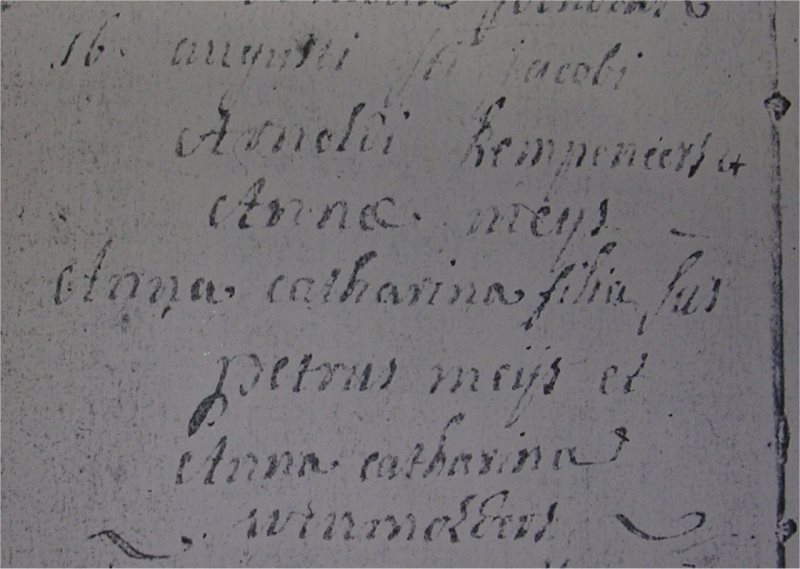 16 augusti sti jacobi
Arnoldi kempeneers et
Annæ meijs
Anna catharina filia sus
petrus meijs et
Anna catharina
winmolders